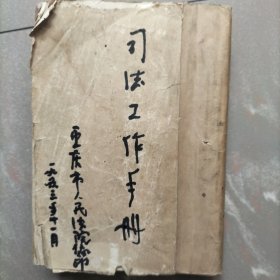 司法工作手册
重庆市人民法院编印
一九五三年十一月